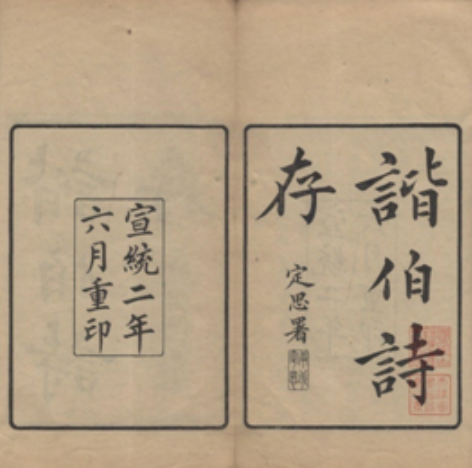 諧伯詩
存
定思署
宣統二年
六月重印